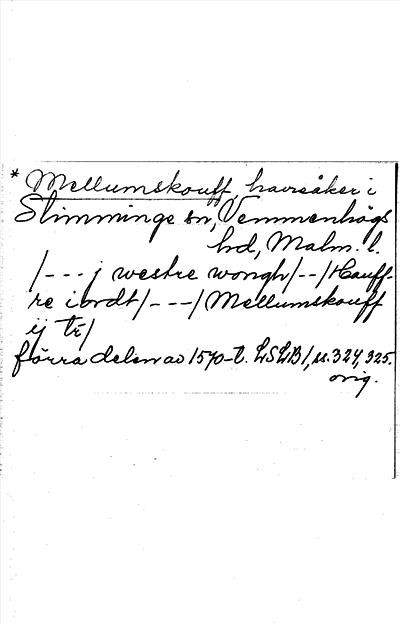 * Mellumskouff, havreåker i
Slimminge sn, Vemmenhögs
hd, Malm. l.
/--- j westre wongh/--/Hauff-
re iordt/---/Mellumskouff
ij tr/
förra delen av 1570-t. LSLB1, s. 324, 325.
orig.